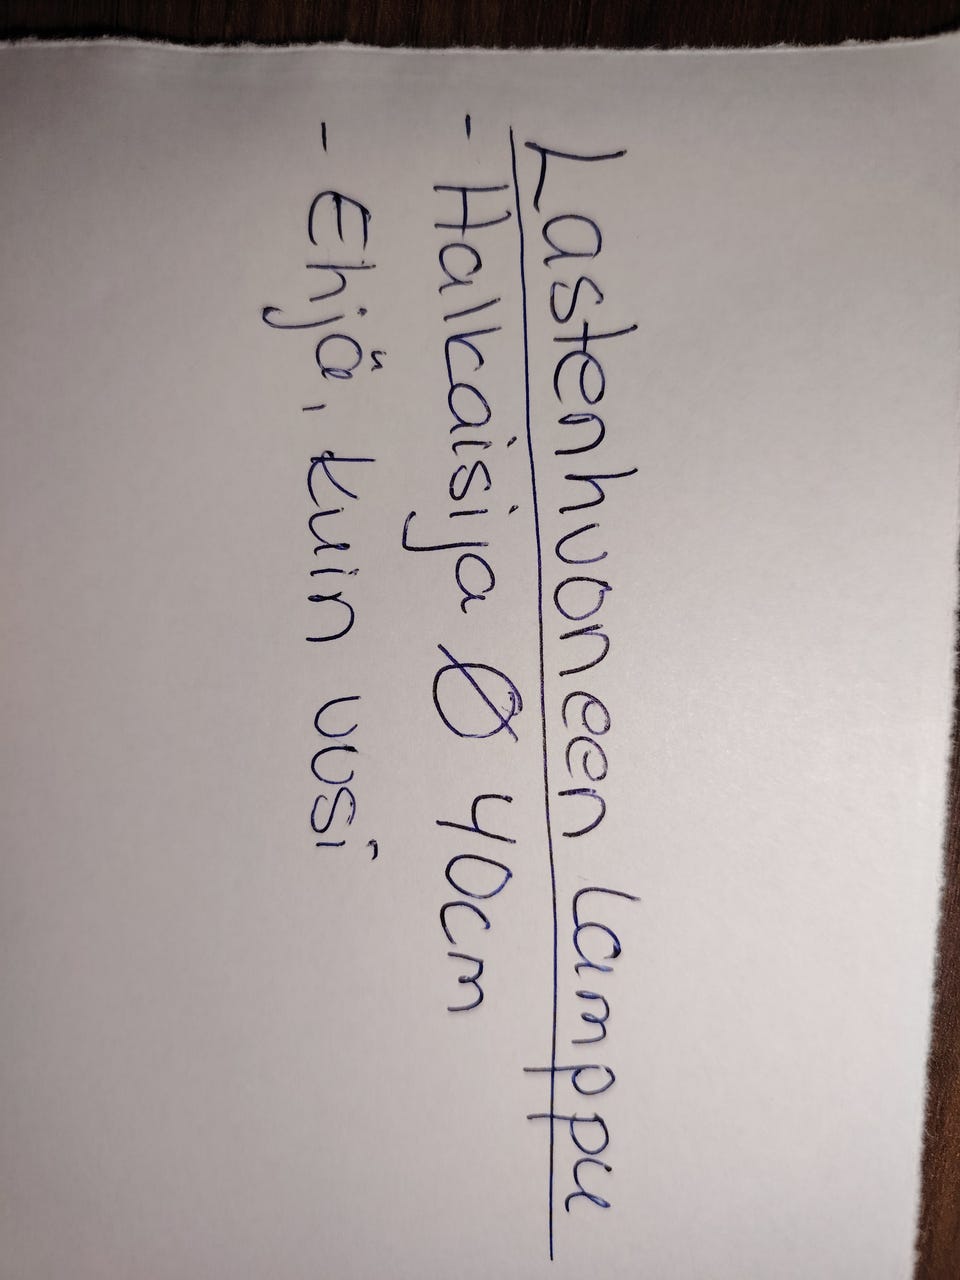 Lastenhuoneen Lamppu
- Halkaisija Ø 40cm
- Ehjä, kuin uusi